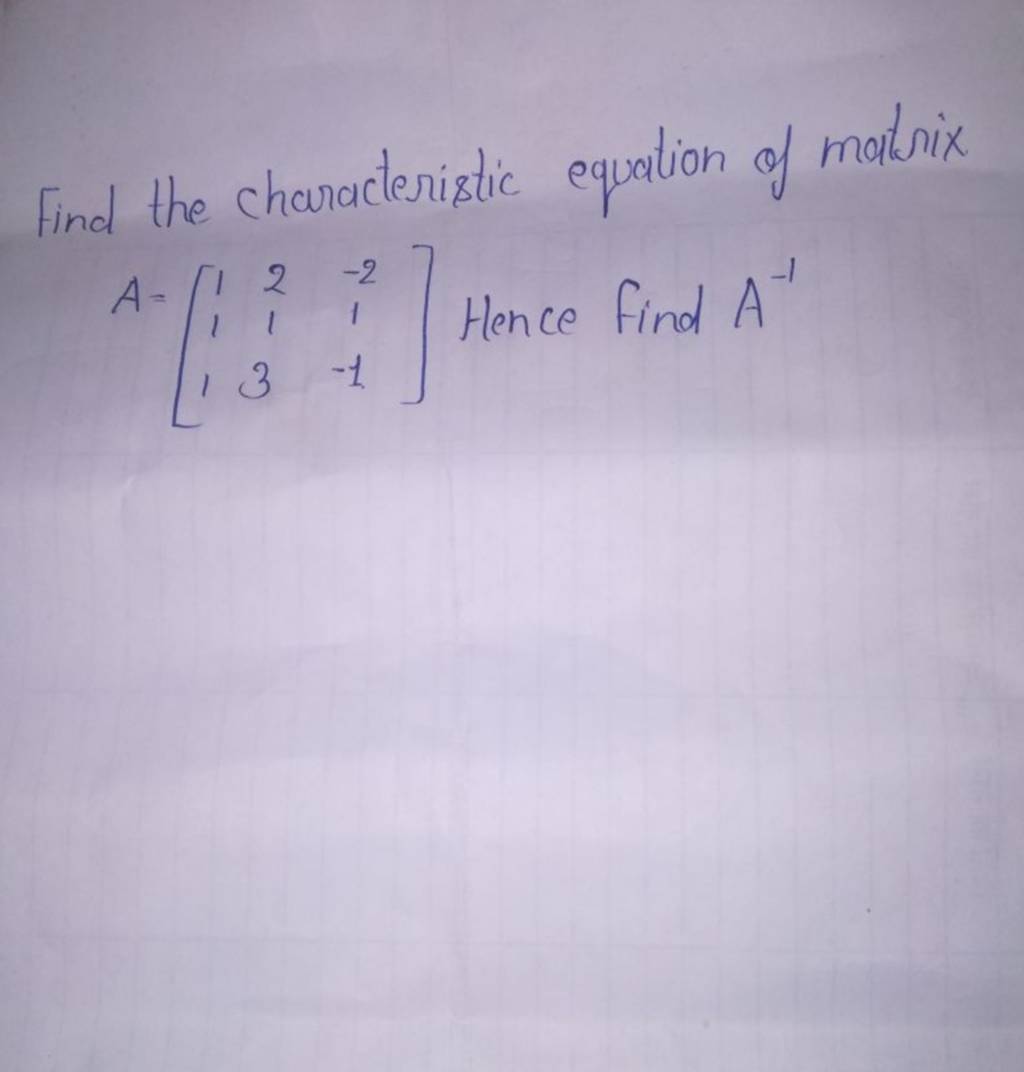 Find the characteristic equation of matrix
A = [ 1 2 -2 ] Hence find A⁻¹
1 1 1
1 3 -1